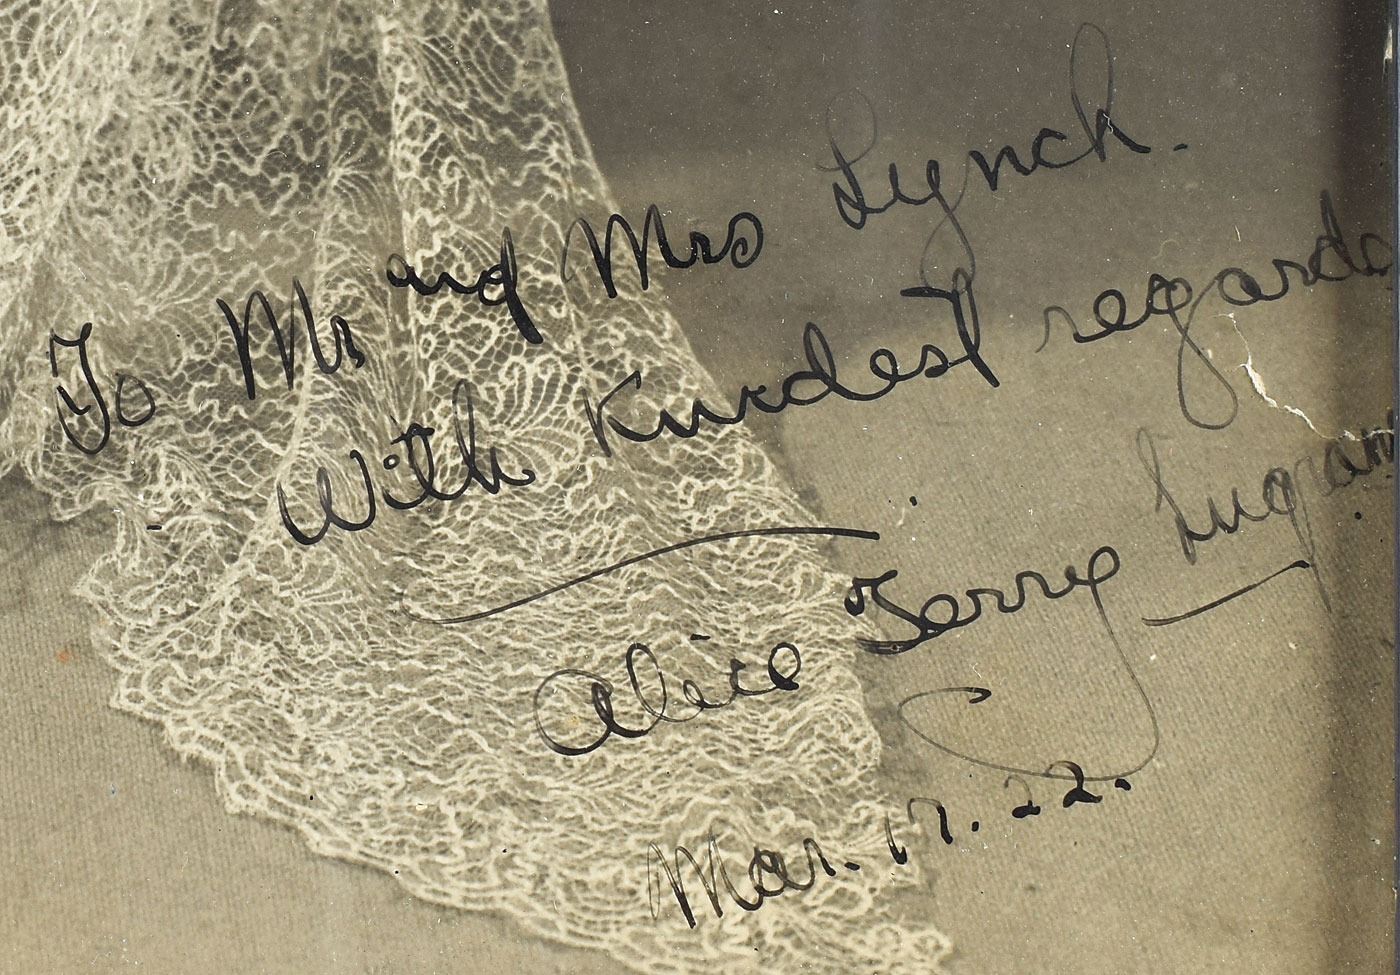 To Mr and Mrs Lynch.
With Kindest regards
Alice Terry Ingram
Mar. 17. 22.